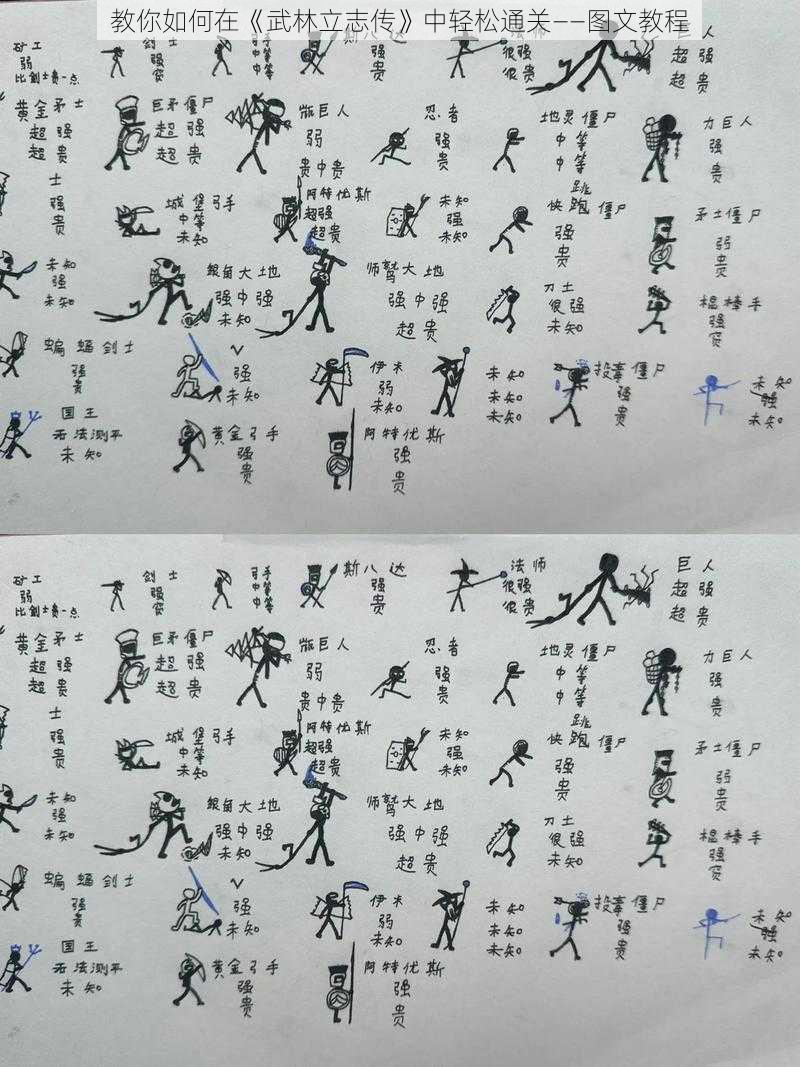 教你如何在《武林立志传》中轻松通关——图文教程
矿工
弱
比剑士贵一点
士
强
贵
弓手
中等
中等
斯八达
强
贵
法师
很强
很贵
巨人
超强
超贵
黄金矛士
超强
超贵
巨矛僵尸
超强
超贵
巨人
弱
贵中贵
忍者
强
贵
地灵僵尸
中等
中等
力巨人
强
贵
士
强
贵
城堡弓手
中等
未知
阿特优斯
超强
超贵
未知
强
未知
跳
快跑僵尸
强
贵
矛士僵尸
弱
贵
未知
强
未知
银角大地
强中强
未知
师鹫大地
强中强
超贵
刀士
很强
未知
棍棒手
强
蝙蝠剑士
强
贵
V
强
未知
伊木
弱
未知
未知
未知
未知
投毒僵尸
强
贵
未知
强
未知
国王
无法测平
未知
黄金弓手
强
贵
阿特优斯
强
贵
矿工
弱
比剑士贵一点
剑士
强
弓手
中等
中等
斯八达
强
贵
法师
很强
很贵
巨人
超强
超贵
黄金矛士
超强
超贵
巨矛僵尸
超强
超贵
巨人
弱
贵中贵
忍者
强
贵
地灵僵尸
中等
中等
力巨人
强
贵
士
强
贵
城堡弓手
中等
未知
阿特优斯
超强
超贵
未知
强
未知
跳
快跑僵尸
强
贵
矛士僵尸
弱
贵
未知
强
未知
银角大地
强中强
未知
师鹫大地
强中强
超贵
刀士
很强
未知
棍棒手
强
蝙蝠剑士
强
贵
V
强
未知
伊木
弱
未知
未知
未知
未知
投毒僵尸
强
贵
未知
强
未知
国王
无法测平
未知
黄金弓手
强
贵
阿特优斯
强
贵